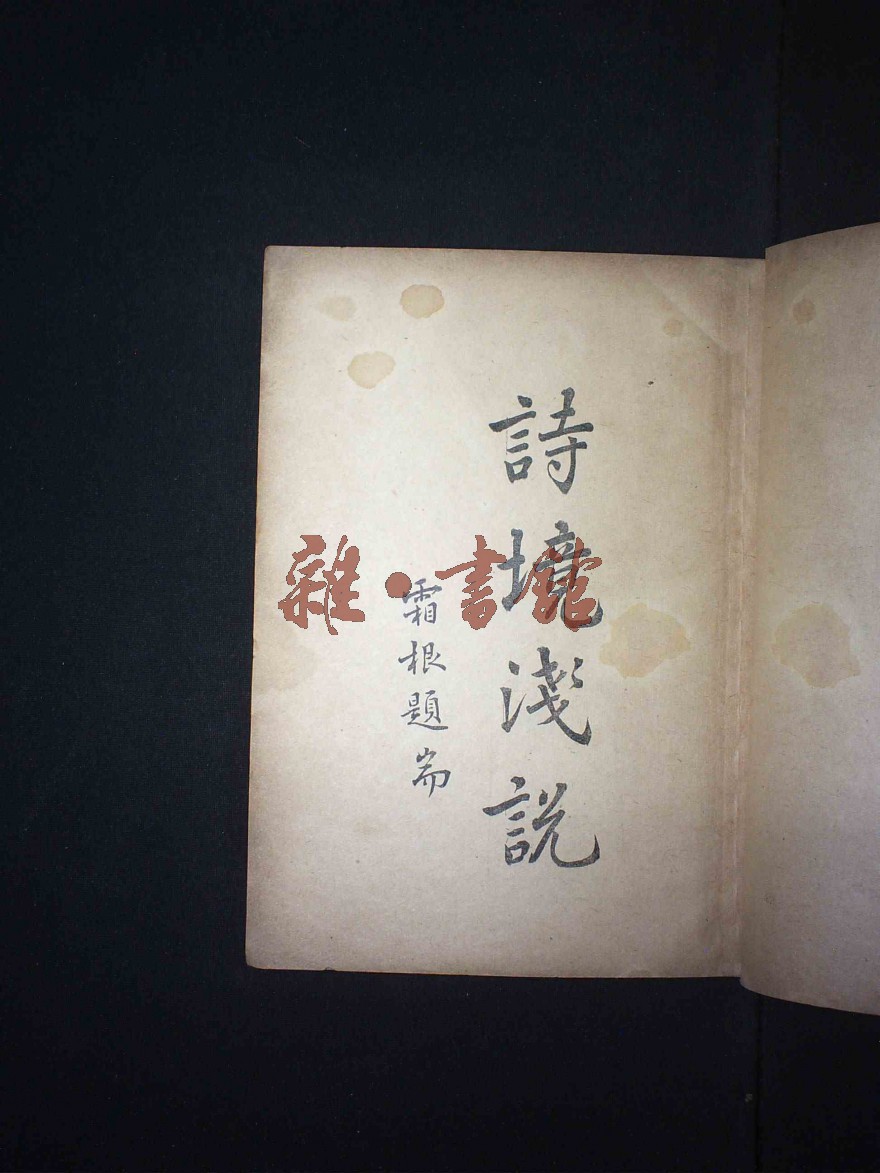 詩境淺說
霜根題耑
雜·書館